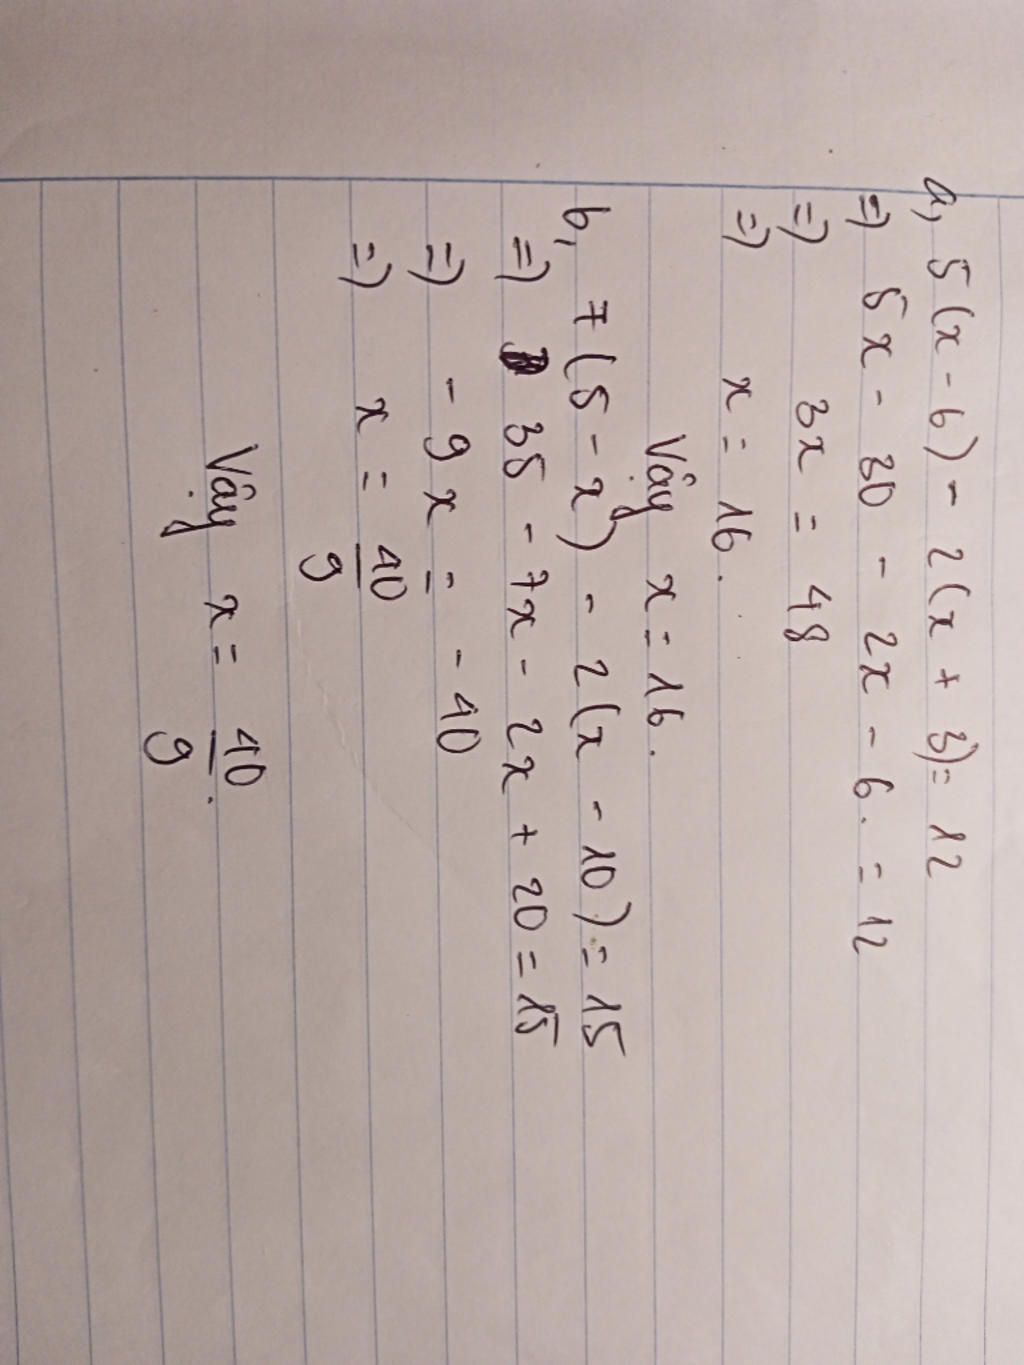 a, 5(x - 6) - 2(x + 3) = 12
=) 5x - 30 - 2x - 6. = 12
=) 3x = 48
=) x = 16.
Vậy x = 16.
b, 7(5 - x) - 2(x - 10) = 15
=) 35 - 7x - 2x + 20 = 15
=) - 9x = - 40
=) x = 40/9
Vậy x = 40/9.